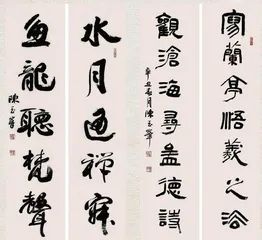 寫蘭亭悟羲之法
觀滄海尋孟德詩
陳玉峯
水月通禪寂
魚龍聽梵聲
陳玉峯